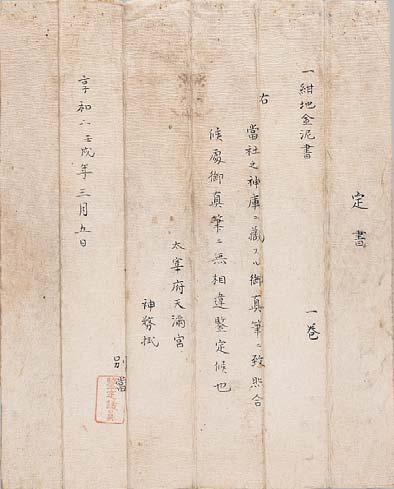 定書
一紺地金泥書　一巻
右
當社之神庫ニ蔵スル御真筆ニ致照合
候處御真筆ニ無相違鑒定候也
太宰府天満宮
神務掛
別當
鑒定議員
享和二壬戌年三月五日